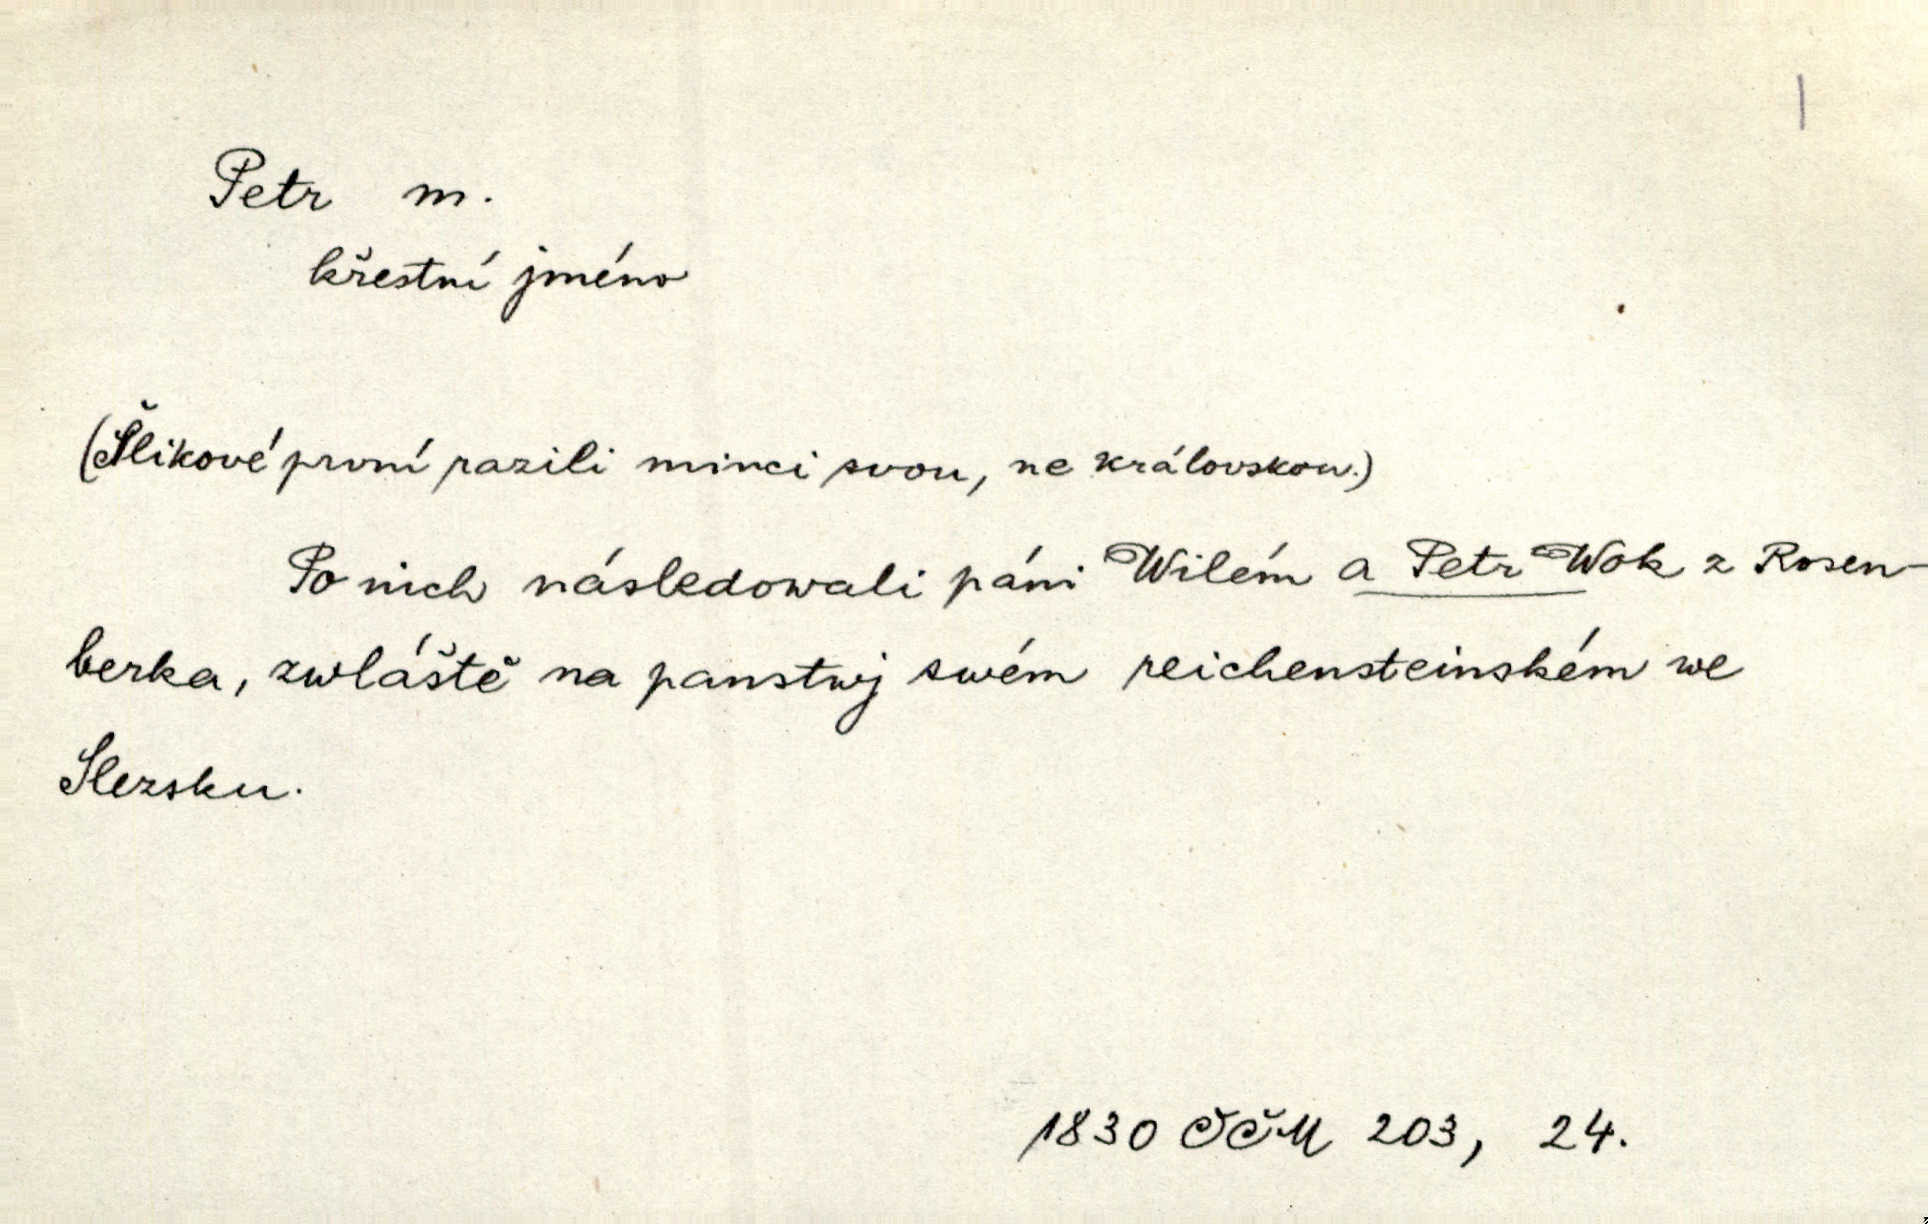 |
Petr m.
křestní jméno
(Šlikové první razili minci svou, ne královskou.)
Po nich následowali páni Wilém a Petr Wok z Rosen-
berka, zwláště na panstwj swém reichensteinském we
Slezsku.
1830 ČČM 203, 24.